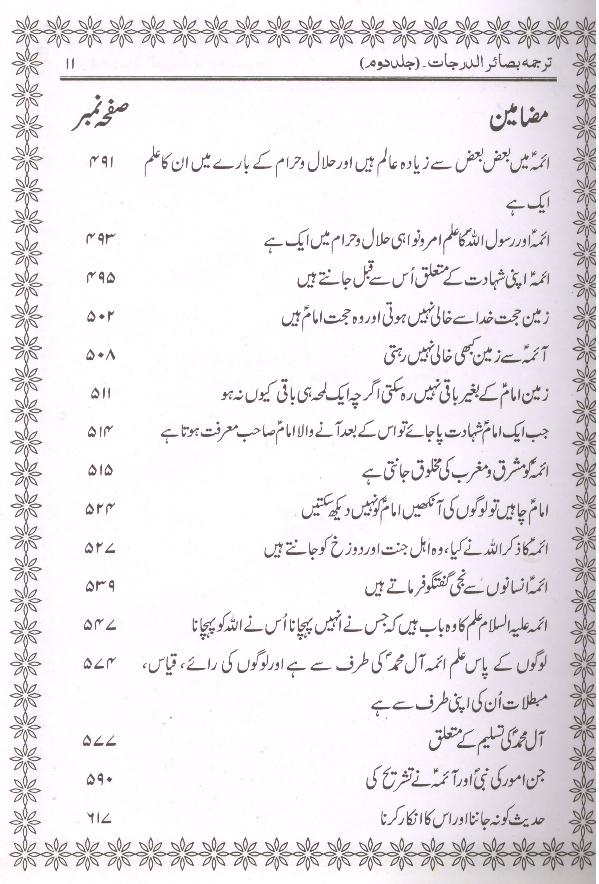 ترجمہ بصائر الدرجات۔ (جلد دوم) ۱۱
مضامین صفحہ نمبر
ائمہؑ میں بعض بعض سے زیادہ عالم ہیں اور حلال و حرام کے بارے میں ان کا علم ۴۹۱
ایک ہے
ائمہؑ اور رسول اللہؐ کا علم امر و نواہی حلال و حرام میں ایک ہے ۴۹۳
ائمہؑ اپنی شہادت کے متعلق اُس سے قبل جانتے ہیں ۴۹۵
زمین حجت خدا سے خالی نہیں ہوتی اور وہ حجت امامؑ ہیں ۵۰۲
آئمہؑ سے زمین کبھی خالی نہیں رہتی ۵۰۸
زمین امامؑ کے بغیر باقی نہیں رہ سکتی اگرچہ ایک لمحہ ہی باقی کیوں نہ ہو ۵۱۱
جب ایک امامؑ شہادت پا جائے تو اس کے بعد آنے والا امامؑ صاحب معرفت ہوتا ہے ۵۱۴
ائمہؑ کو مشرق و مغرب کی مخلوق جانتی ہے ۵۱۵
امامؑ چاہیں تو لوگوں کی آنکھیں امامؑ کو نہیں دیکھ سکتیں ۵۲۴
ائمہؑ کا ذکر اللہ نے کیا، وہ اہل جنت اور دوزخ کو جانتے ہیں ۵۲۷
ائمہؑ انسانوں سے نجی گفتگو فرماتے ہیں ۵۳۹
ائمہ علیہ السلام علم کا وہ باب ہیں کہ جس نے انہیں پہچانا اُس نے اللہ کو پہچانا ۵۴۷
لوگوں کے پاس علم ائمہ آل محمدؐ کی طرف سے ہے اور لوگوں کی رائے، قیاس، ۵۷۴
مبطلات اُن کی اپنی طرف سے ہے
آل محمدؐ کی تسلیم کے متعلق ۵۷۷
جن امور کی نبیؐ اور آئمہؑ نے تشریح کی ۵۹۰
حدیث کو نہ جاننا اور اس کا انکار کرنا ۶۱۷